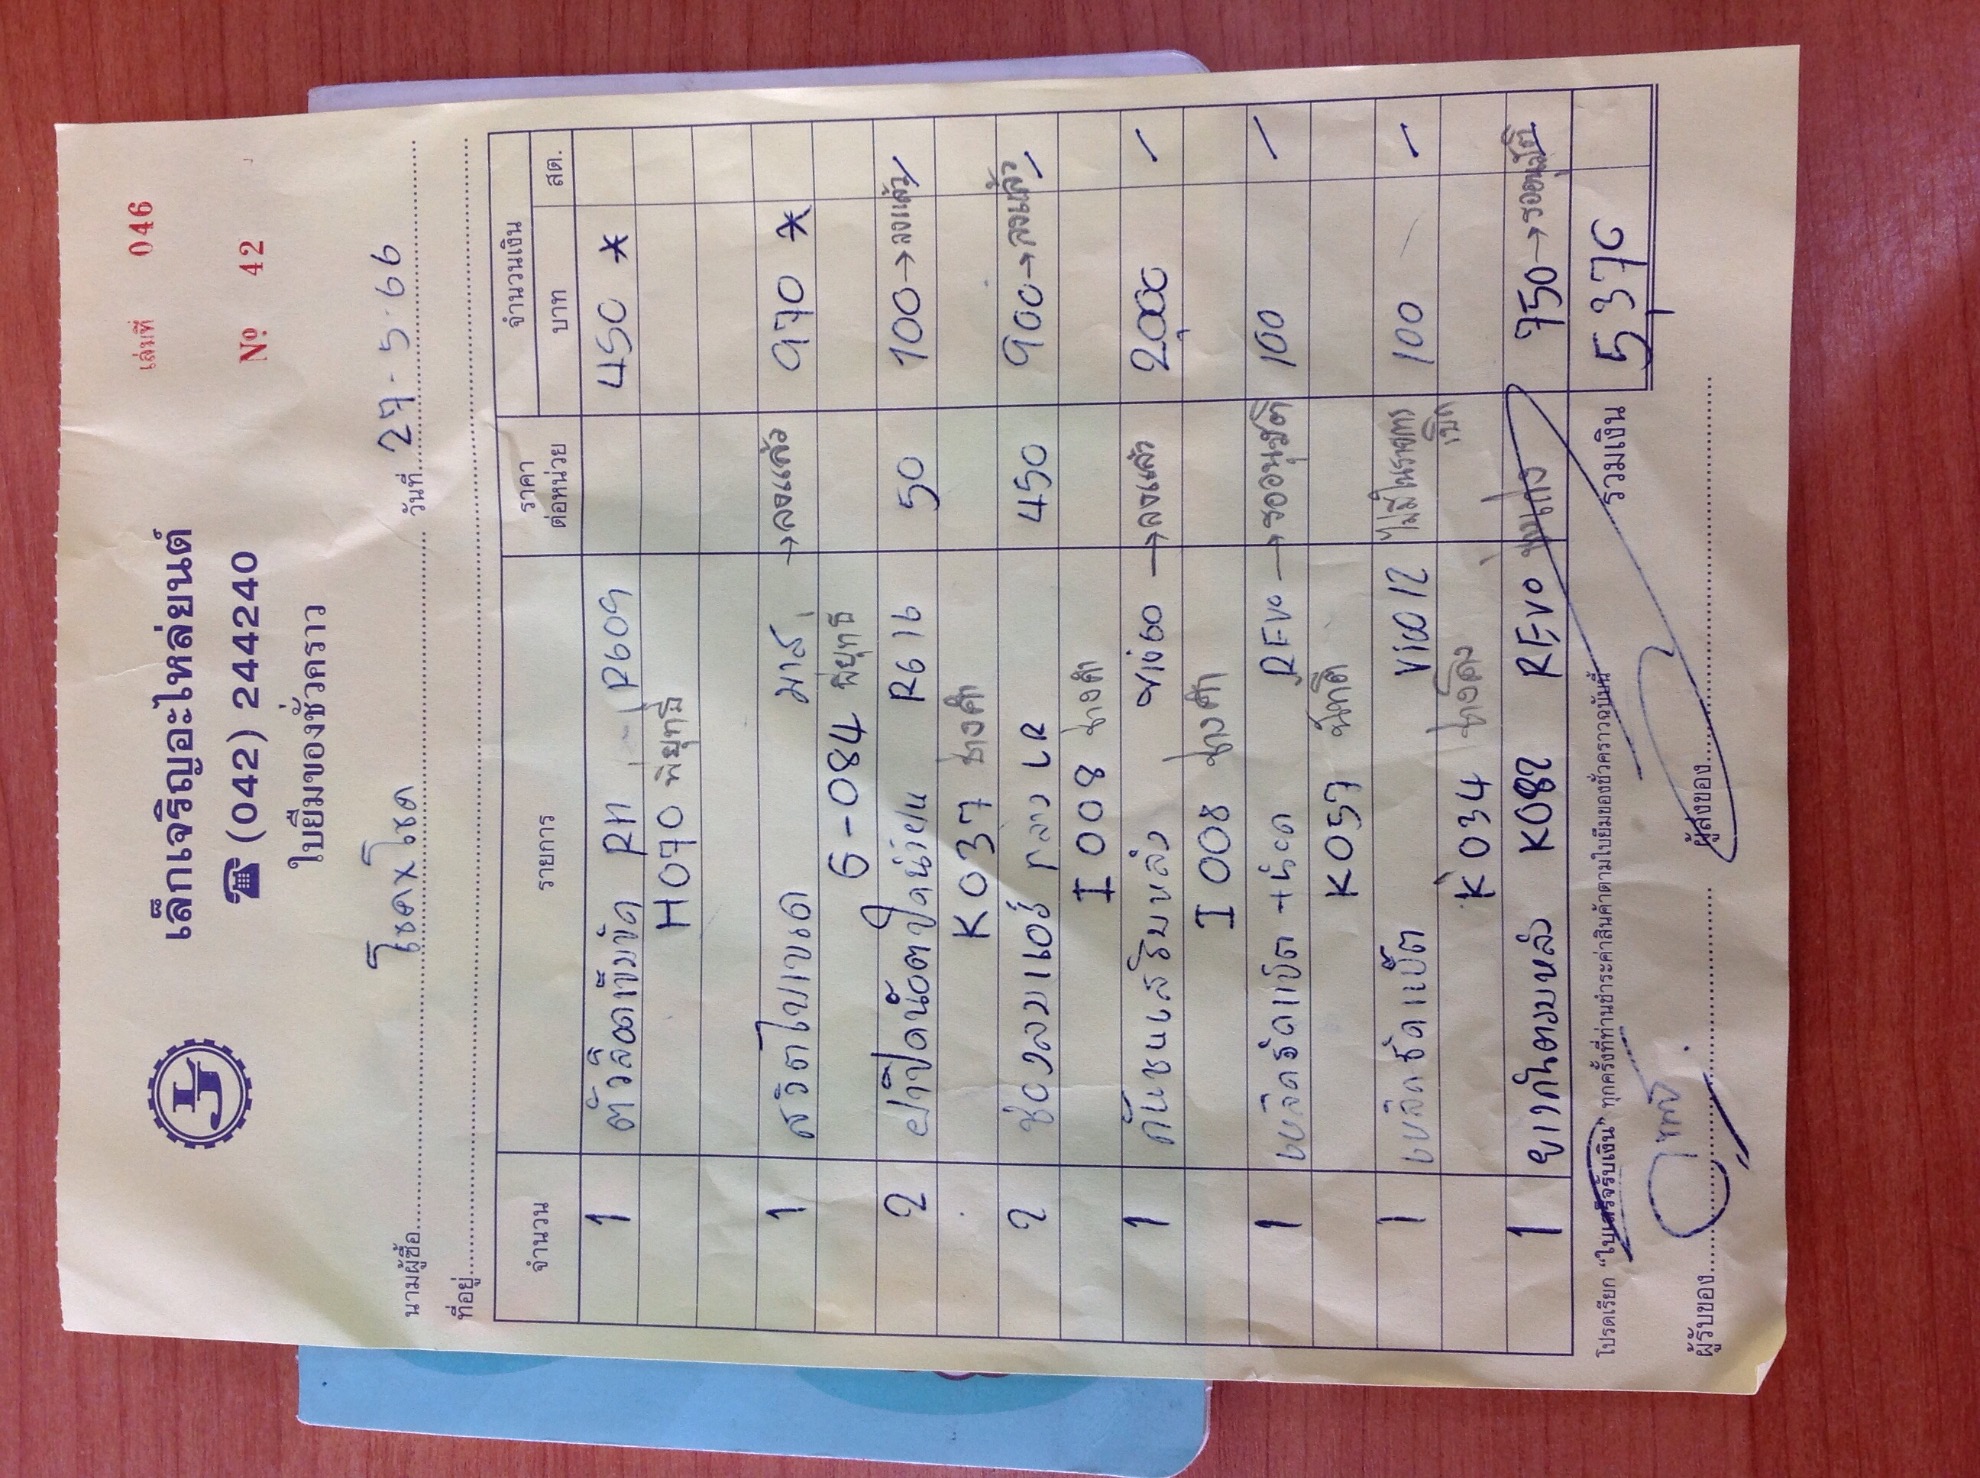 เล่มที่ 046
เล็กเจริญอะไหล่ยนต์
☎ (042) 244240
Nº 42
ใบยืมของชั่วคราว
นามผู้ซื้อ โชคxโชค วันที่ 27-5-66
ที่อยู่
จำนวน รายการ ราคาต่อหน่วย จำนวนเงิน บาท สต.
1 ตัวล็อคเข็มขัด RH R609 450 *
H070 พิยุทธิ์
1 สวิตไบเขนด มาส์ →ลงแล้ว 970 *
G-084 พิยุทธิ์
2 ฝาปิดน๊อตปัดน้ำฝน R616 50 100→ลงแล้ว/
K037 ช่างศึก
2 ช่องลมแอร์ กลาง LR 450 900→ลงแล้ว/
I 008 ช่างศึก
1 กันชนเสริมหลัง →ลงแล้ว 2,000 /
I 008 ช่างศึก
1 เหล็กรัดแบ็ต +น๊อต REVO →รออนุมัติ 100 /
K057 นันทดี
1 เหล็กรัดแบ็ต VIGO 12 ไม่มีในรายการเบิก 100 /
K034
1 ยางกันตมหลัง K082 REVO 750→รออนุมัติ
โปรดเรียก "ใบเสร็จรับเงิน" ทุกครั้งที่ท่านชำระค่าสินค้าตามใบยืมของชั่วคราวฉบับนี้ รวมเงิน 5,370
ผู้รับของ ผู้ส่งของ